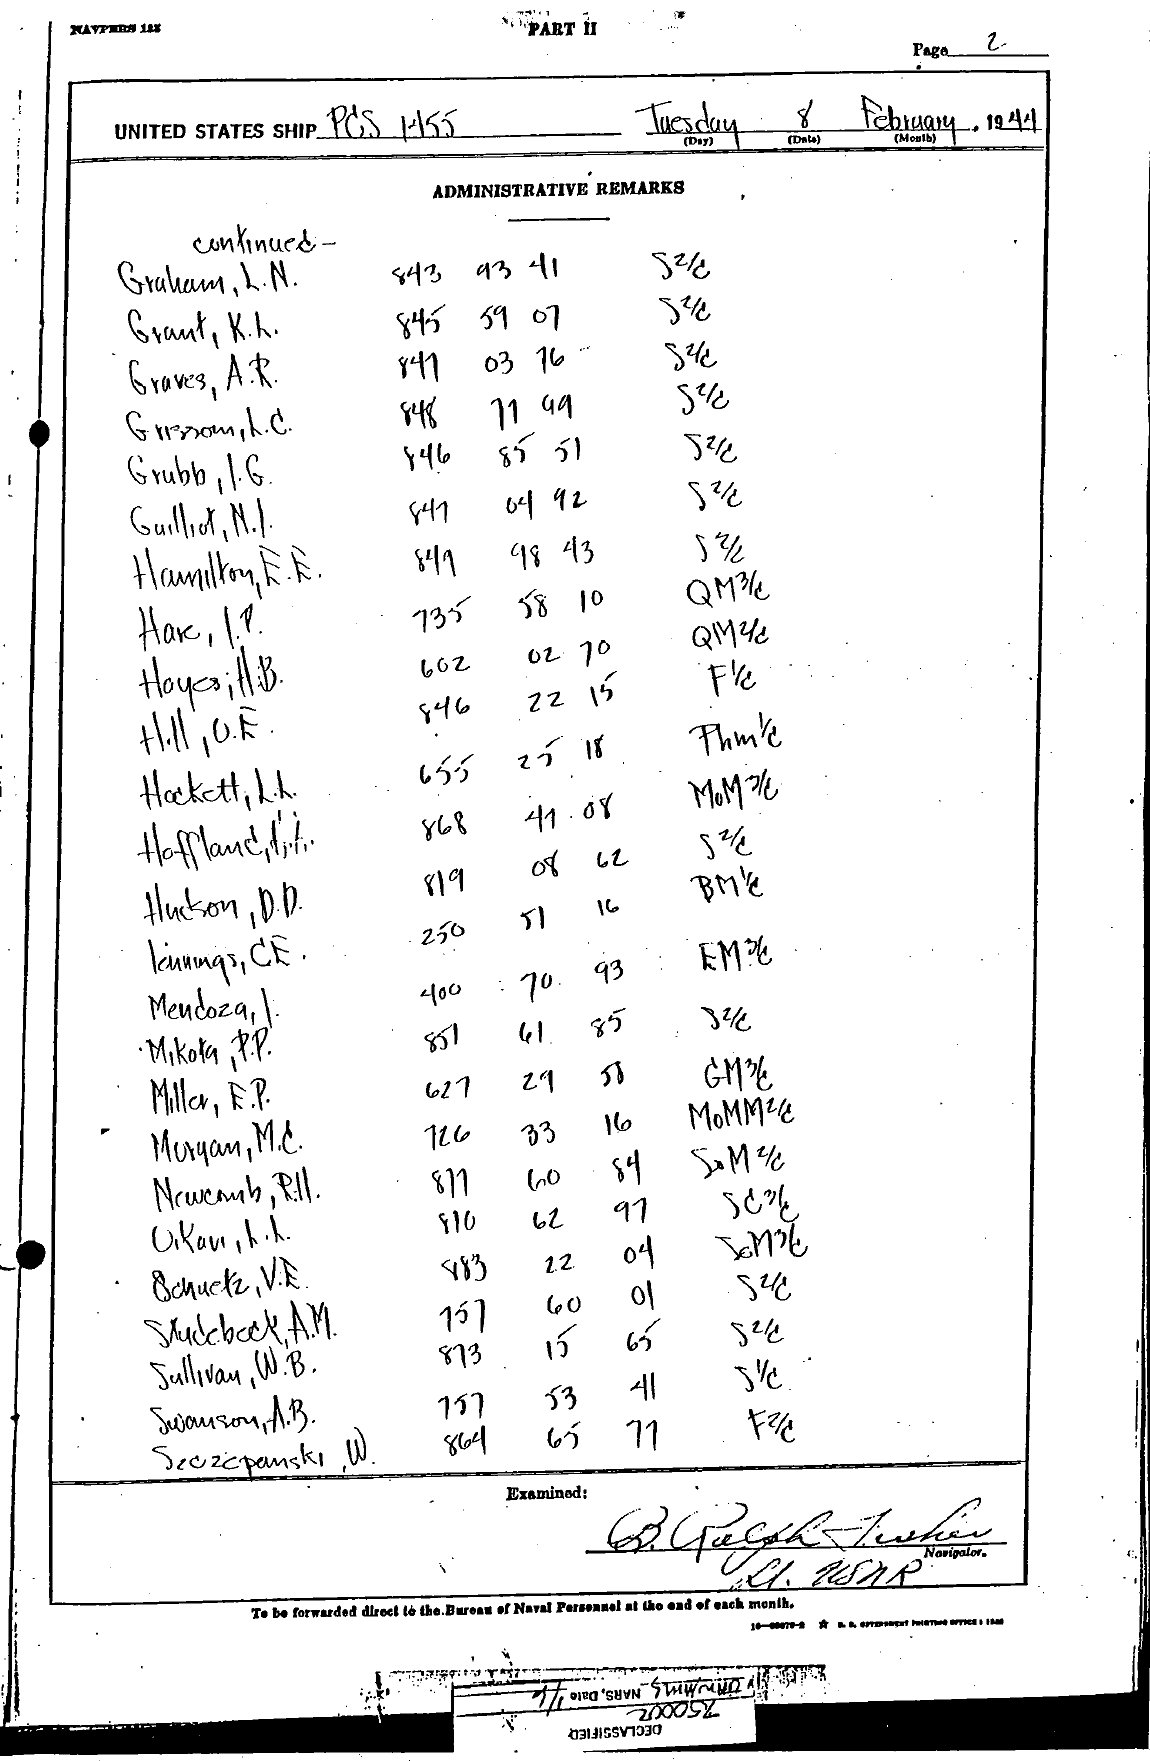 NAVPERS 135
PART II
Page 2
UNITED STATES SHIP PCS 1455 Tuesday 8 February, 1944
(Day) (Date) (Month)
ADMINISTRATIVE REMARKS
continued-
Graham, L.N. 843 93 41 S2/C
Grant, K.L. 845 59 07 S2/C
Graves, A.R. 847 03 76 S2/C
Grissom, L.C. 848 77 99 S2/C
Grubb, J.G. 846 85 51 S2/C
Guilliot, N.J. 847 04 92 S2/C
Hamilton, E.E. 849 98 43 S2/C
Hare, J.P. 735 58 10 QM3/C
Hayes, H.B. 602 02 70 QM2/C
Hill, O.E. 846 22 15 F1/C
Hockett, L.L. 655 25 18 Phm1/C
Hoffland, 868 47 08 MoM3/C
Hudson, D.D. 819 08 62 S2/C
Jennings, C.E. 250 51 16 BM1/C
Mendoza, J. 400 70 93 EM3/C
Mikota, P.P. 851 61 85 S2/C
Miller, E.P. 627 29 58 GM3/C
Morgan, M.C. 726 33 16 MoMM2/C
Newcomb, R.H. 877 60 84 SoM2/C
L.L. 810 62 97 SC3/C
Schuetz, V.E. 883 22 04 SoM3/C
Studebeck, A.M. 757 60 01 S2/C
Sullivan, W.B. 873 15 65 S2/C
Swanson, A.B. 757 53 41 S1/C
Szczepanski, W. 864 65 77 F2/C
Examined:
B. Ralph
Navigator.
Lt. USNR
To be forwarded direct to the Bureau of Naval Personnel at the end of each month.
NARS, Date
750002
DECLASSIFIED